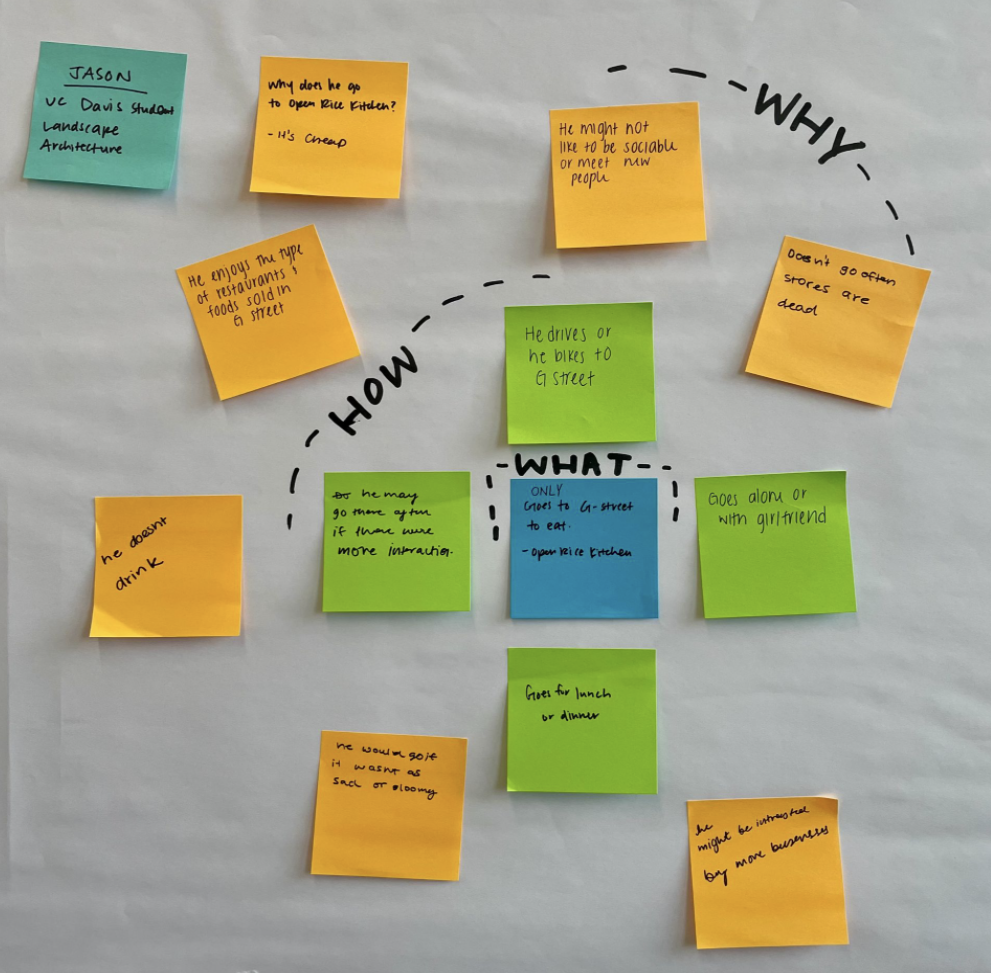 JASON
UC Davis student
Landscape
Architecture
Why does he go
to Open Rice Kitchen?
- It's cheap
He might not
like to be sociable
or meet new
people
WHY
He enjoys the type
of restaurants &
foods sold in
G street
Doesn't go often
stores are
dead
HOW
He drives or
he bikes to
G street
WHAT
he doesnt
drink
he may
go there often
if there were
more interaction.
ONLY
Goes to G-street
to eat.
- Open Rice Kitchen
Goes alone or
with girlfriend
Goes for lunch
or dinner
he would go if
it wasnt as
sad or gloomy
he
might be intrested
by more business